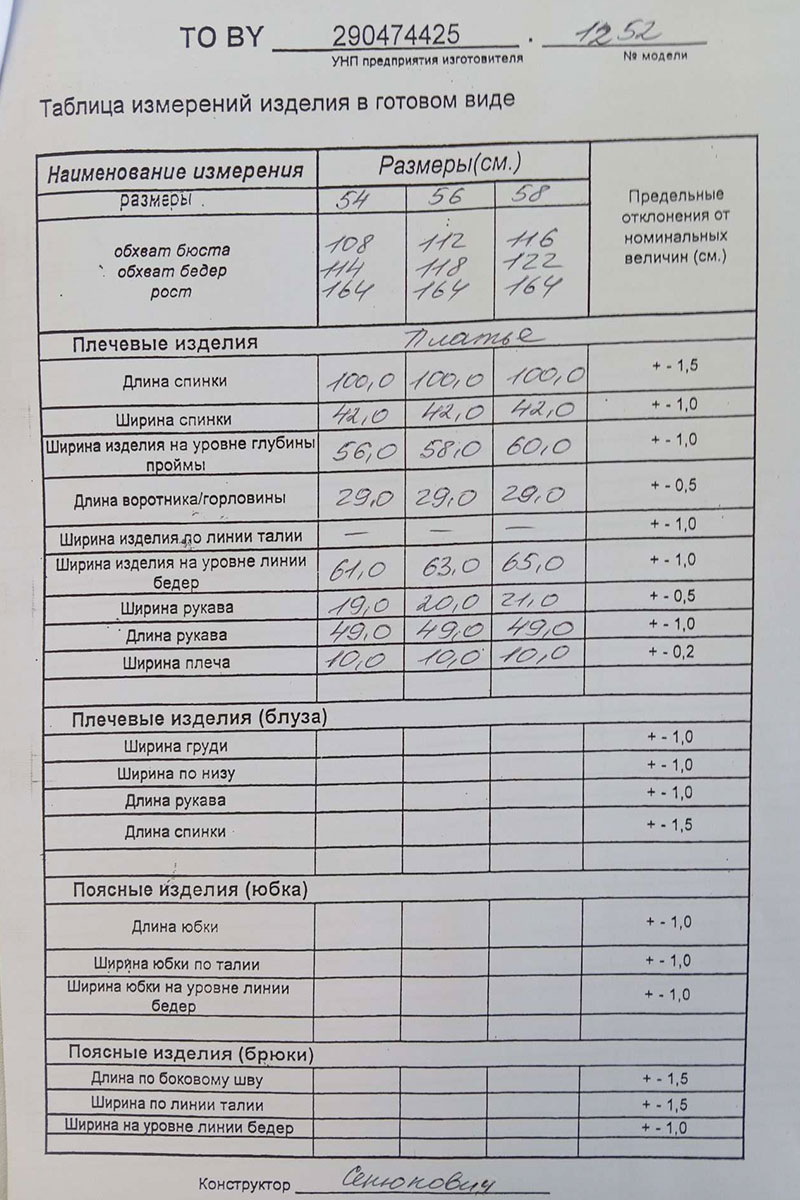 ТО BY 290474425 . 1252
УНП предприятия изготовителя № модели
Таблица измерений изделия в готовом виде
Наименование измерения Размеры(см.) Предельные отклонения от номинальных величин (см.)
размеры . 54 56 58
обхват бюста 108 112 116
обхват бедер 114 118 122
рост 164 164 164
Плечевые изделия Платье
Длина спинки 100,0 100,0 100,0 + - 1,5
Ширина спинки 42,0 42,0 42,0 + - 1,0
Ширина изделия на уровне глубины проймы 56,0 58,0 60,0 + - 1,0
Длина воротника/горловины 29,0 29,0 29,0 + - 0,5
Ширина изделия по линии талии — — — + - 1,0
Ширина изделия на уровне линии бедер 61,0 63,0 65,0 + - 1,0
Ширина рукава 19,0 20,0 21,0 + - 0,5
Длина рукава 49,0 49,0 49,0 + - 1,0
Ширина плеча 10,0 10,0 10,0 + - 0,2
Плечевые изделия (блуза)
Ширина груди + - 1,0
Ширина по низу + - 1,0
Длина рукава + - 1,0
Длина спинки + - 1,5
Поясные изделия (юбка)
Длина юбки + - 1,0
Ширина юбки по талии + - 1,0
Ширина юбки на уровне линии бедер + - 1,0
Поясные изделия (брюки)
Длина по боковому шву + - 1,5
Ширина по линии талии + - 1,5
Ширина на уровне линии бедер + - 1,0
Конструктор Сенюкович